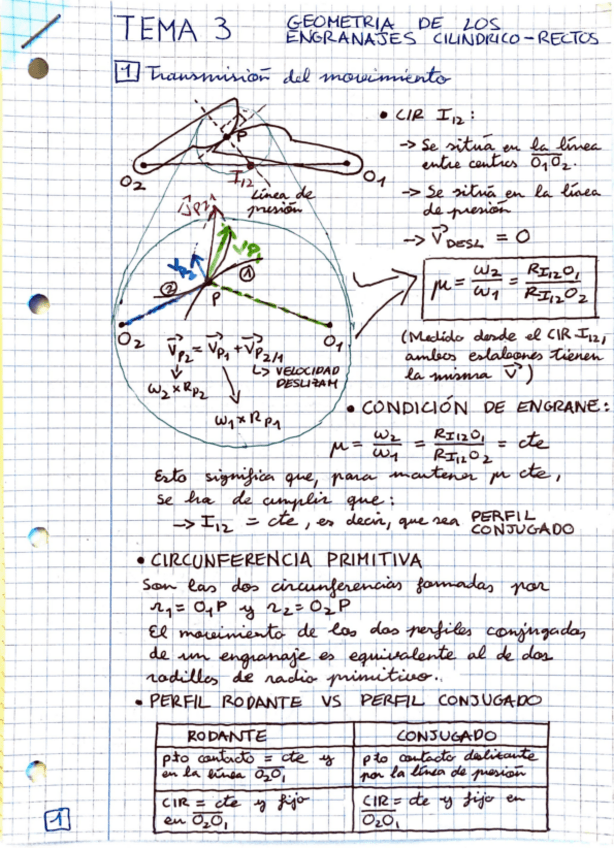 TEMA 3 GEOMETRIA DE LOS
ENGRANAJES CILINDRICO-RECTOS
1 Transmisión del movimiento
P
O2
I12
O1
Línea de
presión
VP2
VP1
②
①
P
O2
O1
V⃗P2 = V⃗P1 + V⃗P2/1
↳ VELOCIDAD
DESLIZAM
ω2 x RP2
ω1 x RP1
• CIR I12:
-> Se situá en la línea
entre centros O1O2.
-> Se situá en la línea
de presión
-> V⃗DESL = 0
μ = ω2/ω1 = RI12O1/RI12O2
(Medido desde el CIR I12,
ambos eslabones tienen
la misma V⃗)
• CONDICIÓN DE ENGRANE:
μ = ω2/ω1 = RI12O1/RI12O2 = cte
Esto significa que, para mantener μ cte,
se ha de cumplir que:
-> I12 = cte, es decir, que sea PERFIL
CONJUGADO
• CIRCUNFERENCIA PRIMITIVA
Son las dos circunferencias formadas por
r1 = O1P y r2 = O2P
El movimiento de los dos perfiles conjugados
de un engranaje es equivalente al de dos
rodillos de radio primitivo.
• PERFIL RODANTE VS PERFIL CONJUGADO
RODANTE CONJUGADO
pto contacto = cte y
en la línea O2O1
pto contacto deslizante
por la línea de presión
CIR = cte y fijo
en O2O1
CIR = cte y fijo en
O2O1
1